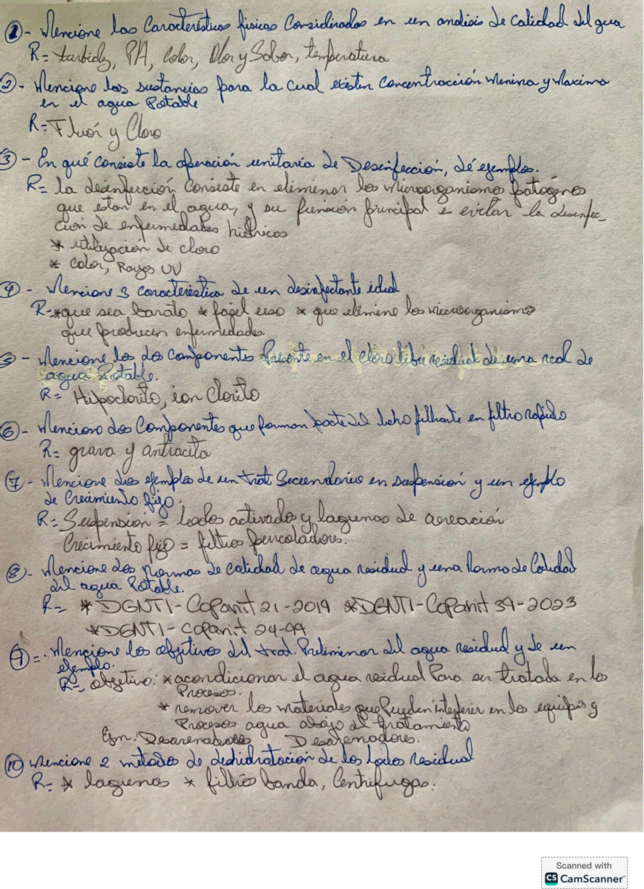 1- Mencione las Características físicas Consideradas en un analisis de Calidad del agua
R= turbidez, PH, Color, Olor y Sabor, temperatura
2- Mencione las sustancias para la cual existen Concentracción Minina y Maxima
en el agua Potable
R= Fluór y Cloro
3- En qué consiste la operación unitaria de Desenfección, dé ejemplos.
R= la desinfección Consiste en eliminar los Microorganismos patogenos
que estan en el agua, y su función principal es evitar la
ción de enfermedades hidricos
* utilización de cloro
* calor, Rayos UV
4- Mencione 3 caracteristica de un desinfectante ideal
R= * que sea barato * fácil uso * que elimine los microorganismo
que producen enfermedades
5- Mencione los dos Componentes presente en el cloro libre residual de una red de
agua Potable.
R= Hipoclorito, ion Clorito
6- Mencione dos Componentes que forman parte del lecho filtrante en filtro rapido
R= grava y antracita
7- Mencione dos ejemplos de un trat Secundario en suspensión y un ejemplo
de Crecimiento fijo.
R= Suspension = lodos activado y lagunas de aereación
Crecimiento fijo = filtros percoladores.
8- Mencione dos Normas de calidad de agua residual y una Norma de Calidad
del agua Potable.
R= * DGNTI-CoPanit 21-2019 * DGNTI-CoPanit 39-2023
* DGNTI-coPanit 24-99
9= Mencione los objetivos del trat. Preliminar del agua residual y de un
ejemplo.
R= objetivo: * acondicionar el agua residual Para ser tratada en los
Procesos.
* remover los materiales que Pueden interferir en los equipos y
Procesos agua abajo del tratamiento
Ejm. Desarenadores Desarenadores.
10 Mencione 2 metodos de deshidratacion de los lodos residual
R= * lagunas * filtro banda, Centrifugas.
Scanned with
CS CamScanner